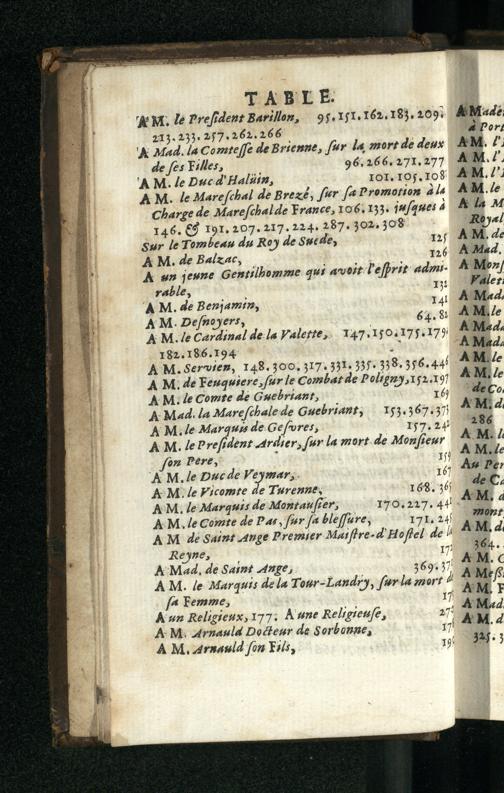 TABLE.
A M. le Preſident Barillon, 95.151.162.183.209.
213.233.257.262.266
A Mad. la Comteſſe de Brienne, ſur la mort de deux
de ſes Filles, 96.266.271.277
A M. le Duc d'Halüin, 101.105.108
A M. le Mareſchal de Brezé, ſur ſa Promotion à la
Charge de Mareſchal de France, 106.133. juſques à
146. & 191.207.217.224.287.302.308
Sur le Tombeau du Roy de Suede, 125
A M. de Balzac, 126
A un jeune Gentilhomme qui avoit l'eſprit admi-
rable, 132
A M. de Benjamin, 141
A M. Deſnoyers, 64.82
A M. le Cardinal de la Valette, 147.150.175.179.
182.186.194
A M. Servien, 148.300.317.331.335.338.356.446
A M. de Feuquiere, ſur le Combat de Poligny, 152.197
A M. le Comte de Guebriant, 169
A Mad. la Mareſchale de Guebriant, 153.367.373
A M. le Marquis de Geſvres, 157.242
A M. le Preſident Ardier, ſur la mort de Monſieur
ſon Pere, 159
A M. le Duc de Veymar, 167
A M. le Vicomte de Turenne, 168.365
A M. le Marquis de Montauſier, 170.227.441
A M. le Comte de Pas, ſur ſa bleſſure, 171.245
A M de Saint Ange Premier Maiſtre-d'Hoſtel de la
Reyne, 172
A Mad. de Saint Ange, 369.37
A M. le Marquis de la Tour-Landry, ſur la mort de
ſa Femme, 17
A un Religieux, 177. A une Religieuſe, 27
A M. Arnauld Docteur de Sorbonne, 17
A M. Arnauld ſon Fils, 19
A Made
à Port
A M. l'
A M. l'
A M. l'
A M. le
A la M
Royal
A M. de
A Mad.
A Monſ
Valet
A Mada
A M. le
A Mada
A Mada
A M. le
A M. le
de Co
A M. d
286
A M. le
A M. le
Au Per
de Ca
A M. d
mont
A M. d
364.
A M. C
A Meſſ
A M. F
A Mad
A M. d
325.3